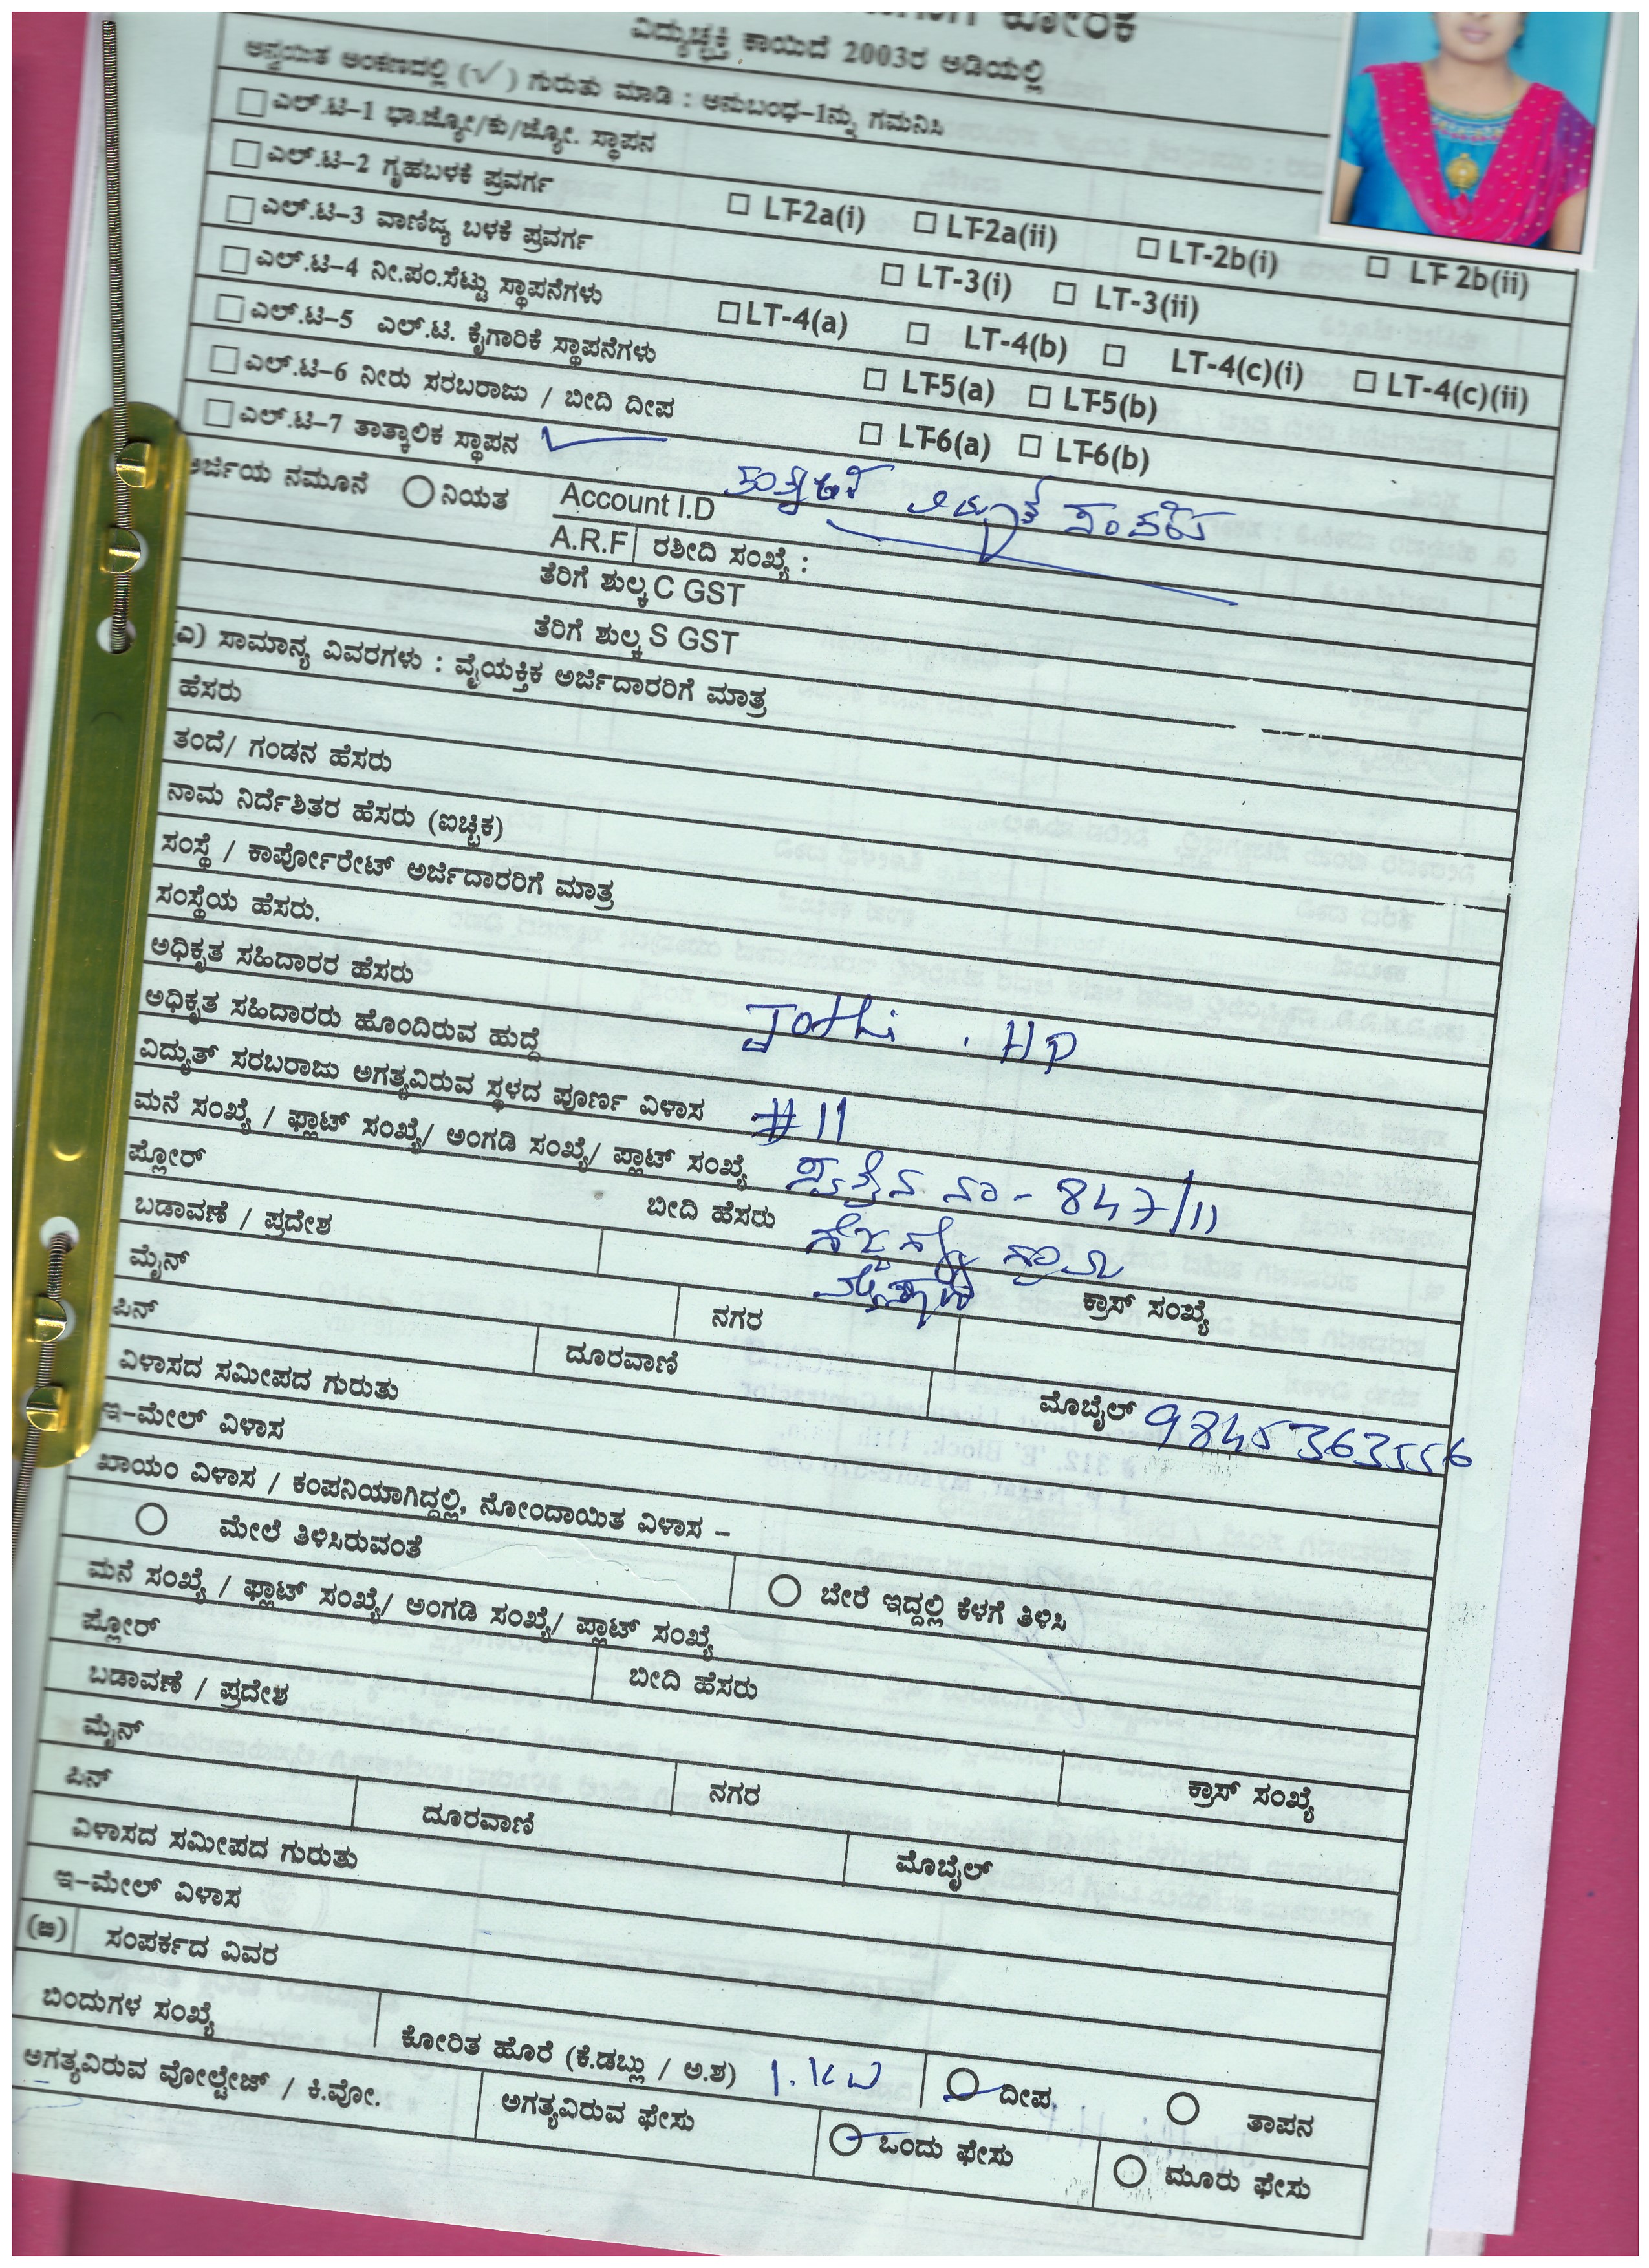 ಕೋರಿಕೆ
ವಿದ್ಯುಚ್ಛಕ್ತಿ ಕಾಯಿದೆ 2003ರ ಅಡಿಯಲ್ಲಿ
ಅನ್ವಯಿತ ಅಂಕಣದಲ್ಲಿ (✓) ಗುರುತು ಮಾಡಿ : ಅನುಬಂಧ-1ನ್ನು ಗಮನಿಸಿ
ಎಲ್.ಟಿ-1 ಭಾ.ಜ್ಯೋ/ಕು/ಜ್ಯೋ. ಸ್ಥಾಪನ
ಎಲ್.ಟಿ-2 ಗೃಹಬಳಕೆ ಪ್ರವರ್ಗ LT-2a(i) LT-2a(ii) LT-2b(i) LT-2b(ii)
ಎಲ್.ಟಿ-3 ವಾಣಿಜ್ಯ ಬಳಕೆ ಪ್ರವರ್ಗ LT-3(i) LT-3(ii)
ಎಲ್.ಟಿ-4 ನೀ.ಪಂ.ಸೆಟ್ಟು ಸ್ಥಾಪನೆಗಳು LT-4(a) LT-4(b) LT-4(c)(i) LT-4(c)(ii)
ಎಲ್.ಟಿ-5 ಎಲ್.ಟಿ. ಕೈಗಾರಿಕೆ ಸ್ಥಾಪನೆಗಳು LT-5(a) LT-5(b)
ಎಲ್.ಟಿ-6 ನೀರು ಸರಬರಾಜು / ಬೀದಿ ದೀಪ LT-6(a) LT-6(b)
ಎಲ್.ಟಿ-7 ತಾತ್ಕಾಲಿಕ ಸ್ಥಾಪನ ✓
ಅರ್ಜಿಯ ನಮೂನೆ ನಿಯತ Account I.D
A.R.F ರಶೀದಿ ಸಂಖ್ಯೆ :
ತೆರಿಗೆ ಶುಲ್ಕ C GST
ತೆರಿಗೆ ಶುಲ್ಕ S GST
(ಎ) ಸಾಮಾನ್ಯ ವಿವರಗಳು : ವೈಯಕ್ತಿಕ ಅರ್ಜಿದಾರರಿಗೆ ಮಾತ್ರ
ಹೆಸರು
ತಂದೆ/ ಗಂಡನ ಹೆಸರು
ನಾಮ ನಿರ್ದೆಶಿತರ ಹೆಸರು (ಐಚ್ಛಿಕ)
ಸಂಸ್ಥೆ / ಕಾರ್ಪೋರೇಟ್ ಅರ್ಜಿದಾರರಿಗೆ ಮಾತ್ರ
ಸಂಸ್ಥೆಯ ಹೆಸರು.
ಅಧಿಕೃತ ಸಹಿದಾರರ ಹೆಸರು
ಅಧಿಕೃತ ಸಹಿದಾರರು ಹೊಂದಿರುವ ಹುದ್ದೆ Jothi . HP
ವಿದ್ಯುತ್ ಸರಬರಾಜು ಅಗತ್ಯವಿರುವ ಸ್ಥಳದ ಪೂರ್ಣ ವಿಳಾಸ #11
ಮನೆ ಸಂಖ್ಯೆ / ಫ್ಲಾಟ್ ಸಂಖ್ಯೆ/ ಅಂಗಡಿ ಸಂಖ್ಯೆ/ ಪ್ಲಾಟ್ ಸಂಖ್ಯೆ 847/11
ಫ್ಲೋರ್ ಬೀದಿ ಹೆಸರು
ಬಡಾವಣೆ / ಪ್ರದೇಶ
ಮೈನ್ ನಗರ ಕ್ರಾಸ್ ಸಂಖ್ಯೆ
ಪಿನ್ ದೂರವಾಣಿ ಮೊಬೈಲ್ 9845363556
ವಿಳಾಸದ ಸಮೀಪದ ಗುರುತು
ಇ-ಮೇಲ್ ವಿಳಾಸ
ಖಾಯಂ ವಿಳಾಸ / ಕಂಪನಿಯಾಗಿದ್ದಲ್ಲಿ, ನೋಂದಾಯಿತ ವಿಳಾಸ -
ಮೇಲೆ ತಿಳಿಸಿರುವಂತೆ ಬೇರೆ ಇದ್ದಲ್ಲಿ ಕೆಳಗೆ ತಿಳಿಸಿ
ಮನೆ ಸಂಖ್ಯೆ / ಫ್ಲಾಟ್ ಸಂಖ್ಯೆ/ ಅಂಗಡಿ ಸಂಖ್ಯೆ/ ಪ್ಲಾಟ್ ಸಂಖ್ಯೆ
ಫ್ಲೋರ್ ಬೀದಿ ಹೆಸರು
ಬಡಾವಣೆ / ಪ್ರದೇಶ
ಮೈನ್ ನಗರ ಕ್ರಾಸ್ ಸಂಖ್ಯೆ
ಪಿನ್ ದೂರವಾಣಿ ಮೊಬೈಲ್
ವಿಳಾಸದ ಸಮೀಪದ ಗುರುತು
ಇ-ಮೇಲ್ ವಿಳಾಸ
ಸಂಪರ್ಕದ ವಿವರ
ಬಿಂದುಗಳ ಸಂಖ್ಯೆ ಕೋರಿತ ಹೊರೆ (ಕೆ.ಡಬ್ಲ್ಯು / ಅ.ಶ) 1.KW ದೀಪ. ತಾಪನ
ಅಗತ್ಯವಿರುವ ವೋಲ್ಟೇಜ್ / ಕಿ.ವೋ. ಅಗತ್ಯವಿರುವ ಫೇಸು ಒಂದು ಫೇಸು ಮೂರು ಫೇಸು